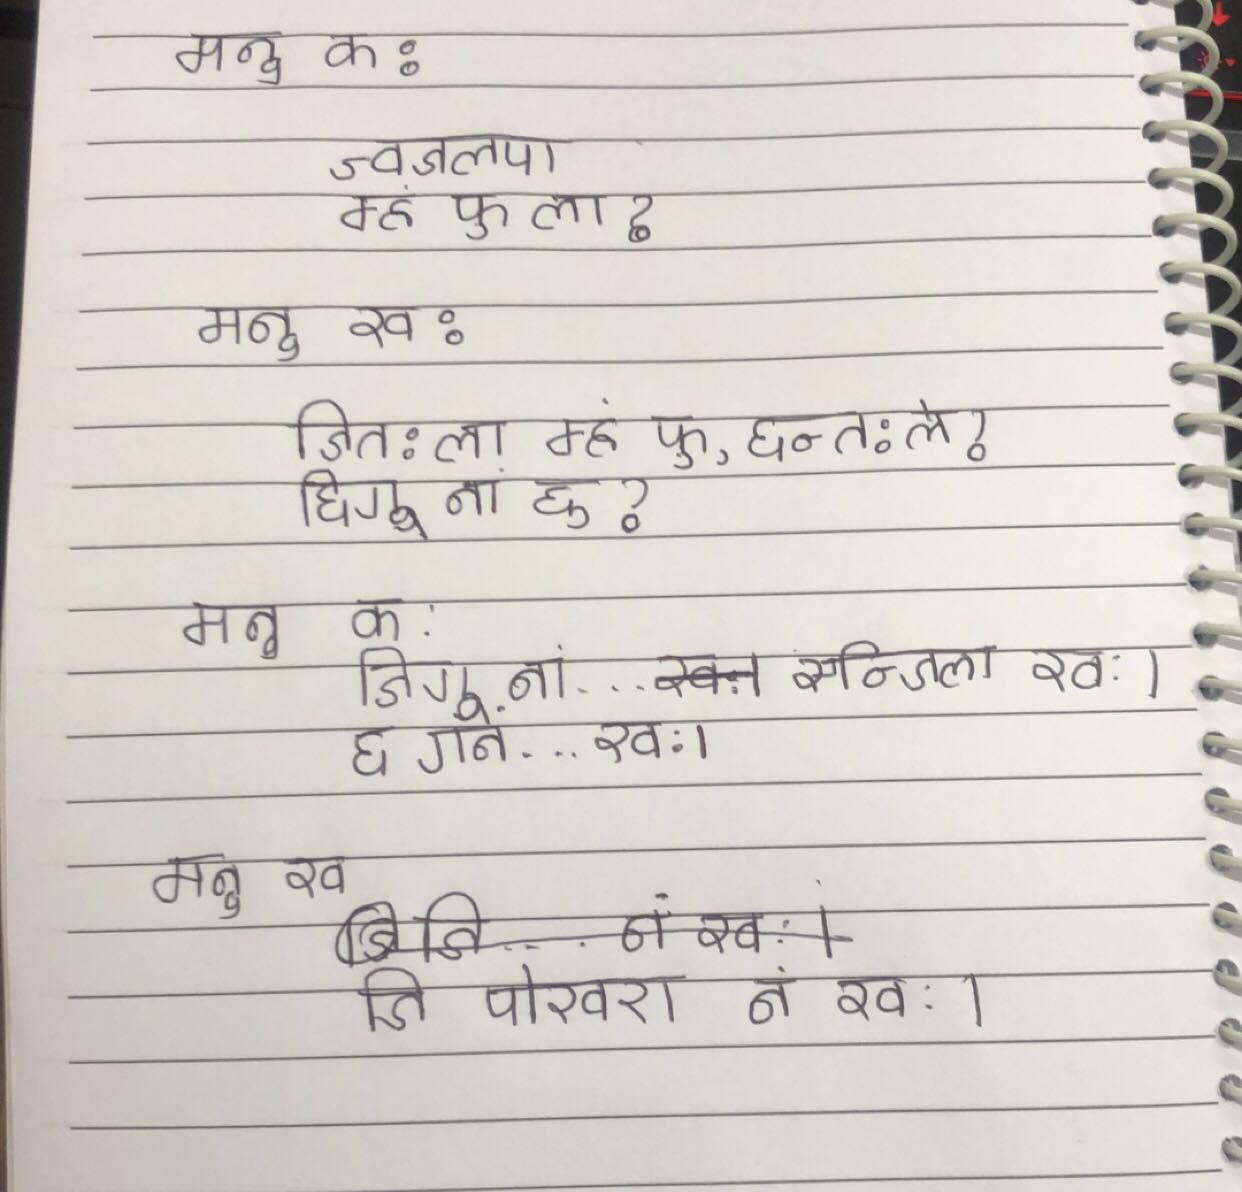 मनु कः
ज्वजलपा
म्हं फु ला?
मनु खः
जितः ला म्हं फु, छन्तः ले?
छिगू नां छु?
मनु क:
जिगू नां... सन्जिला खः।
छ गनं... खः।
मनु ख
जि जि.... नं खः।
जि पोखरा नं खः।